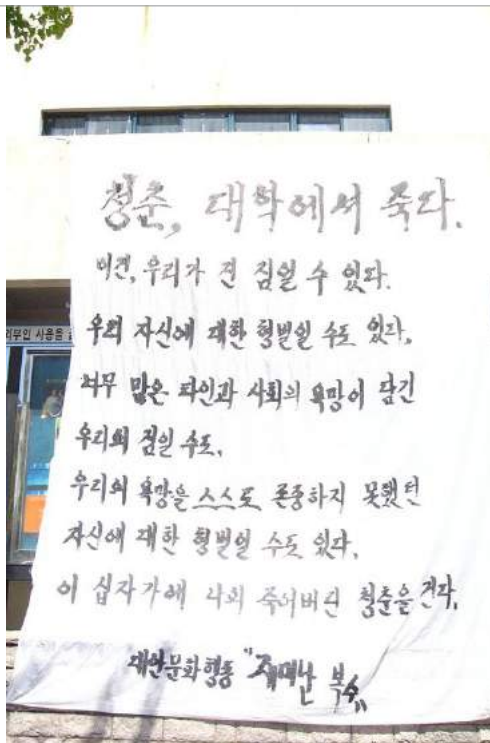 청춘, 대학에서 죽다.
이건, 우리가 진 짐일 수 있다.
우리 자신에 대한 형벌일 수도 있다.
너무 많은 타인과 사회의 욕망이 담긴
우리의 짐일 수도,
우리의 욕망을 스스로 존중하지 못했던
자신에 대한 형벌일 수도 있다.
이 십자가에 나의 죽어버린 청춘을 건다.
대안문화행동 "재미난 복수"
외부인 사용을